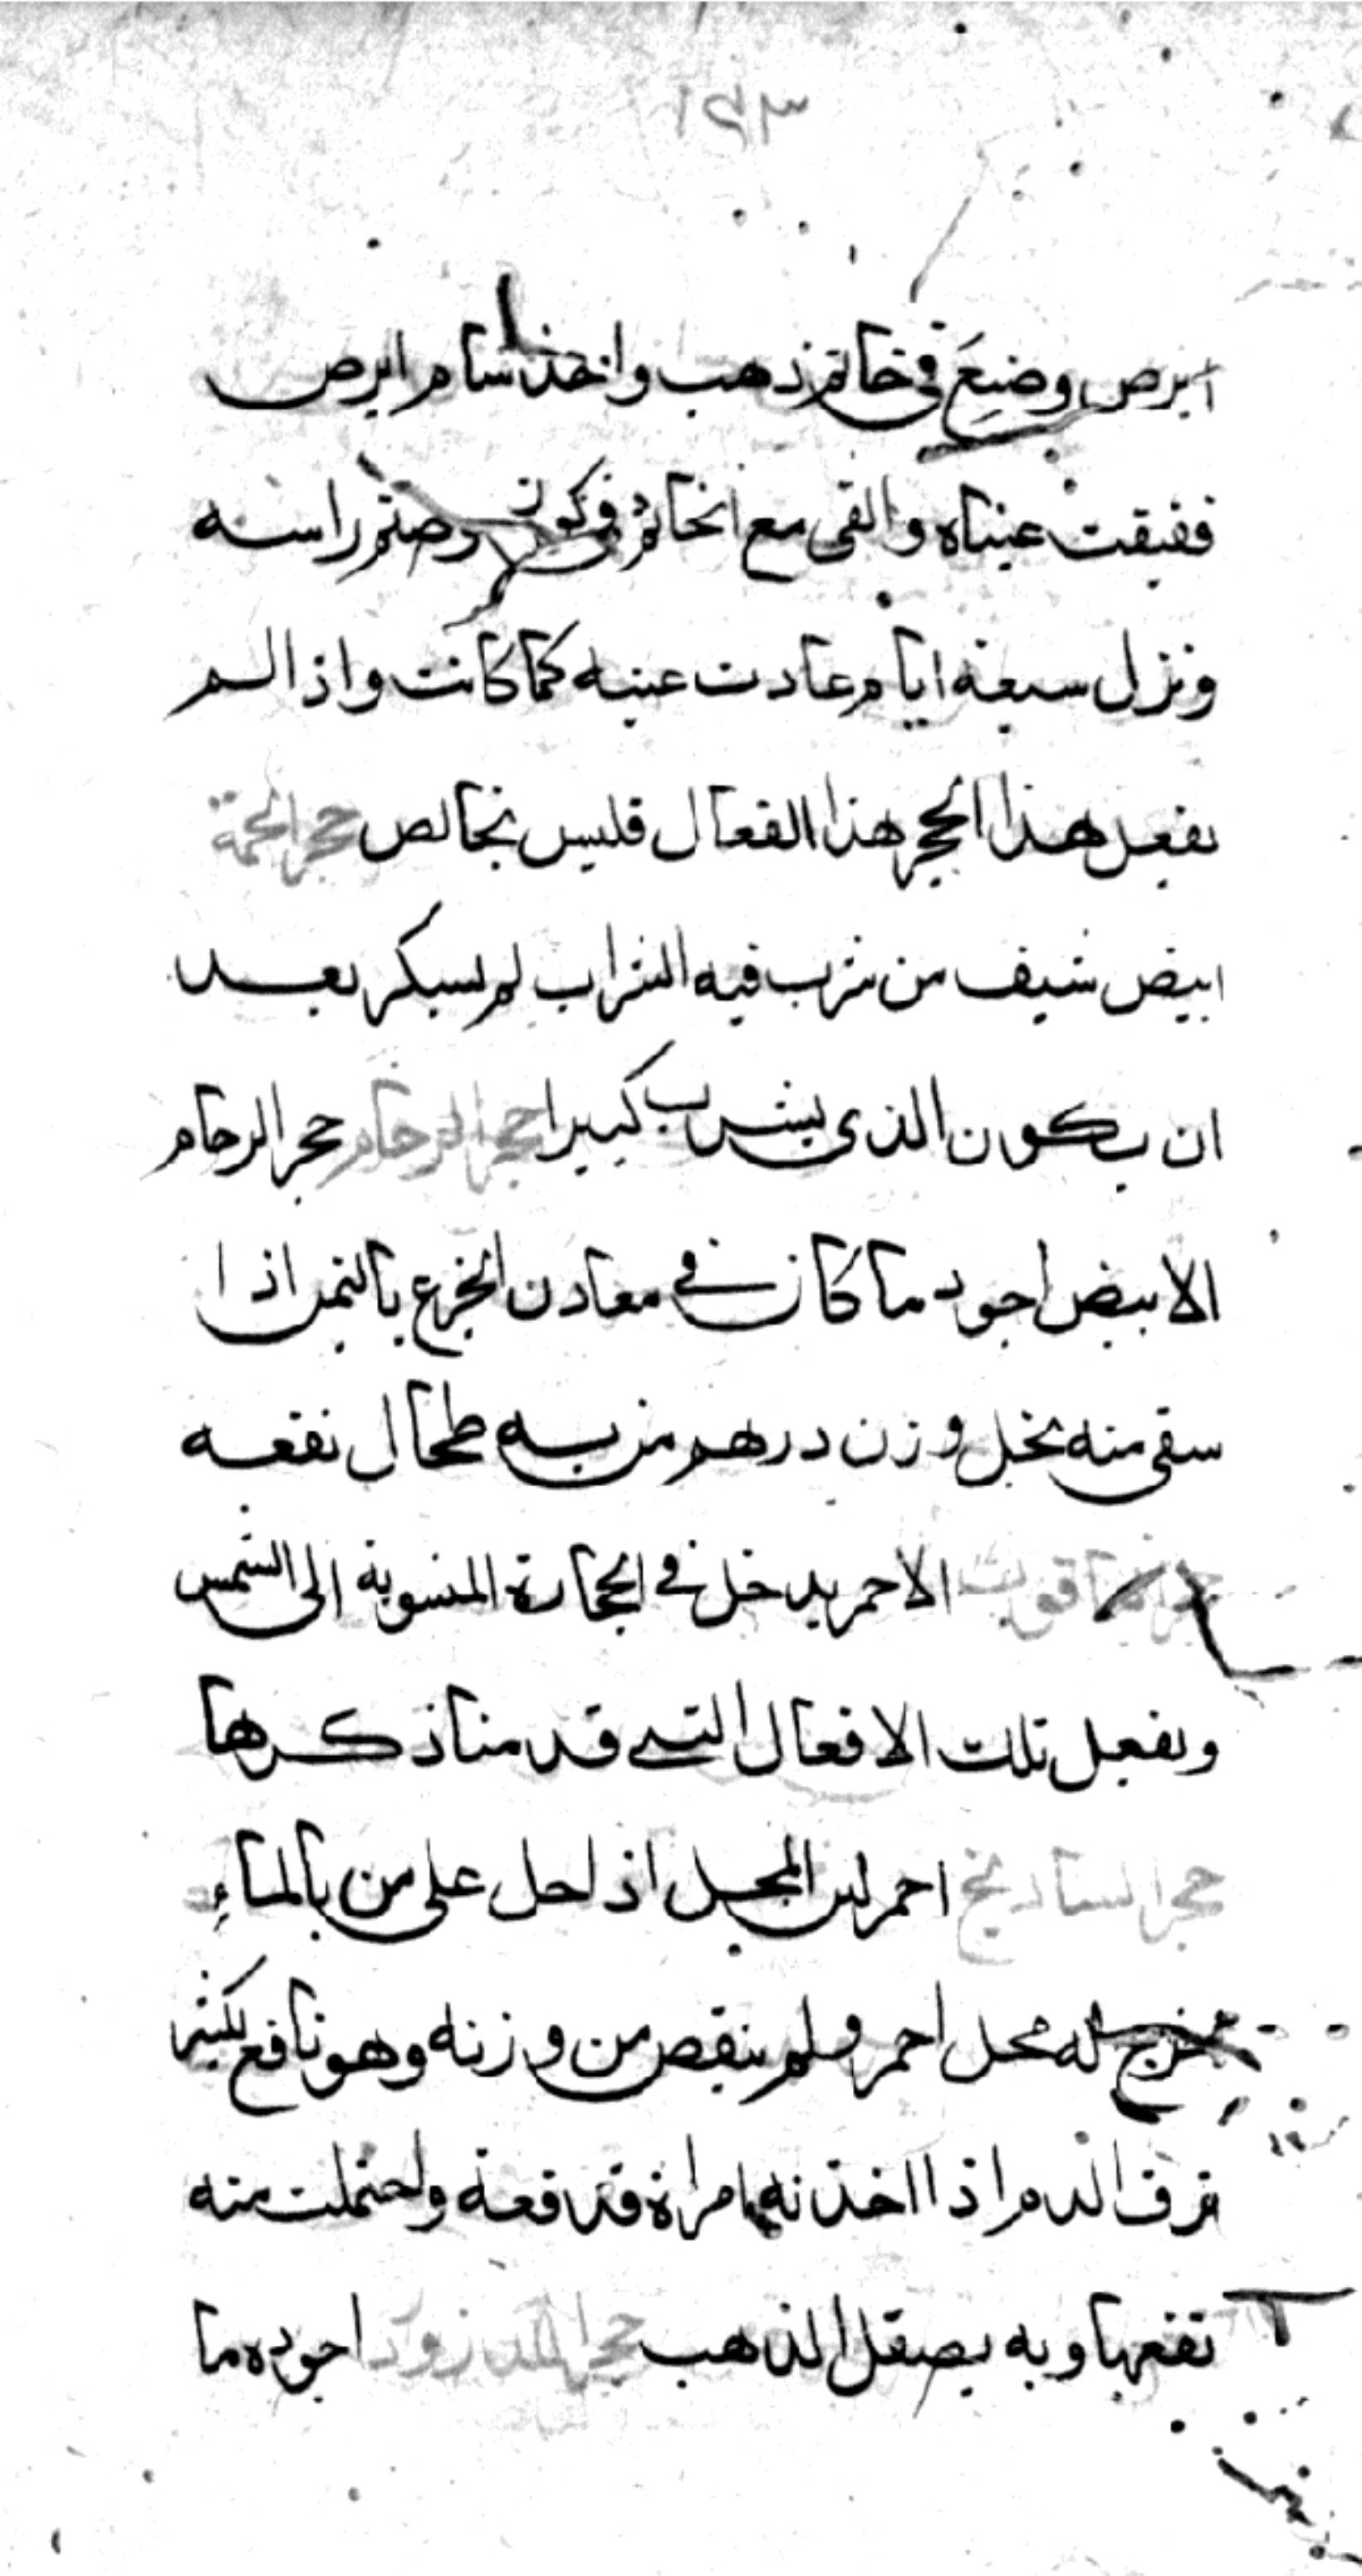 ١٤٣
ابرص وضع في خاتم ذهب واخذ سام ابرص
ففيقت عيناه والقى مع الخاتم في كوز وختم راسه
ونزل سبعة ايام عادت عينيه كما كانت واذا لم
يفعل هذا الحجر هذا الفعال فليس بخالص حجر الحمة
ابيض شيف من شرب فيه الشراب لم يسكر بعد
ان يكون الذي يشرب كبيرا حجر الرخام حجر الرخام
الابيض اجود ما كان في معادن الجزع باليمن اذا
سقي منه بخل وزن درهم من به طحال نفعه
حجر الياقوت الاحمر يدخل في الحجارة المنسوبة الى الشمس
ويفعل تلك الافعال التي قد منا ذكرها
حجر السادنج احمر لين المجل اذا حل على من بالماء
يخرج له محل احمر ولم ينقص من وزنه وهو نافع لكثير
نزف الدم اذا اخذته امراة قد قعة واحتملت منه
نفعها وبه يصقل الذهب حجر اللازورد اجوده ما